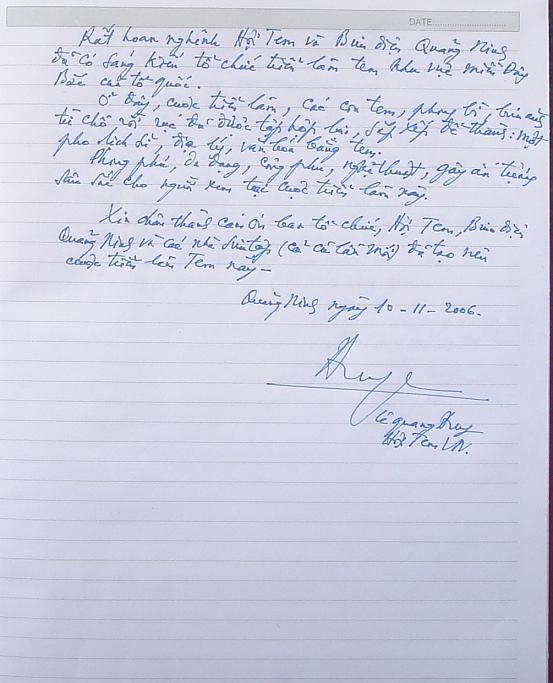 DATE
Rất hoan nghênh Hội Tem và Bưu điện Quảng Ninh
đã có sáng kiến tổ chức triển lãm tem khu vực miền Đông
Bắc của tổ quốc.
Ở đây, cuộc triển lãm, các con tem, phong bì, bưu ảnh
từ chỗ rời rạc đã được tập hợp lại, sắp xếp để thành một
pho lịch sử, địa lý, văn hóa bằng tem.
Phong phú, đa dạng, công phu, nghệ thuật, gây ấn tượng
sâu sắc cho người xem tại cuộc triển lãm này.
Xin chân thành cảm ơn ban tổ chức, Hội Tem, Bưu điện
Quảng Ninh và các nhà sưu tập (cả cũ lẫn mới) đã tạo nên
cuộc triển lãm Tem này -
Quảng Ninh ngày 10 - 11 - 2006.
Huy
Lê Quang Huy
Hội Tem VN.